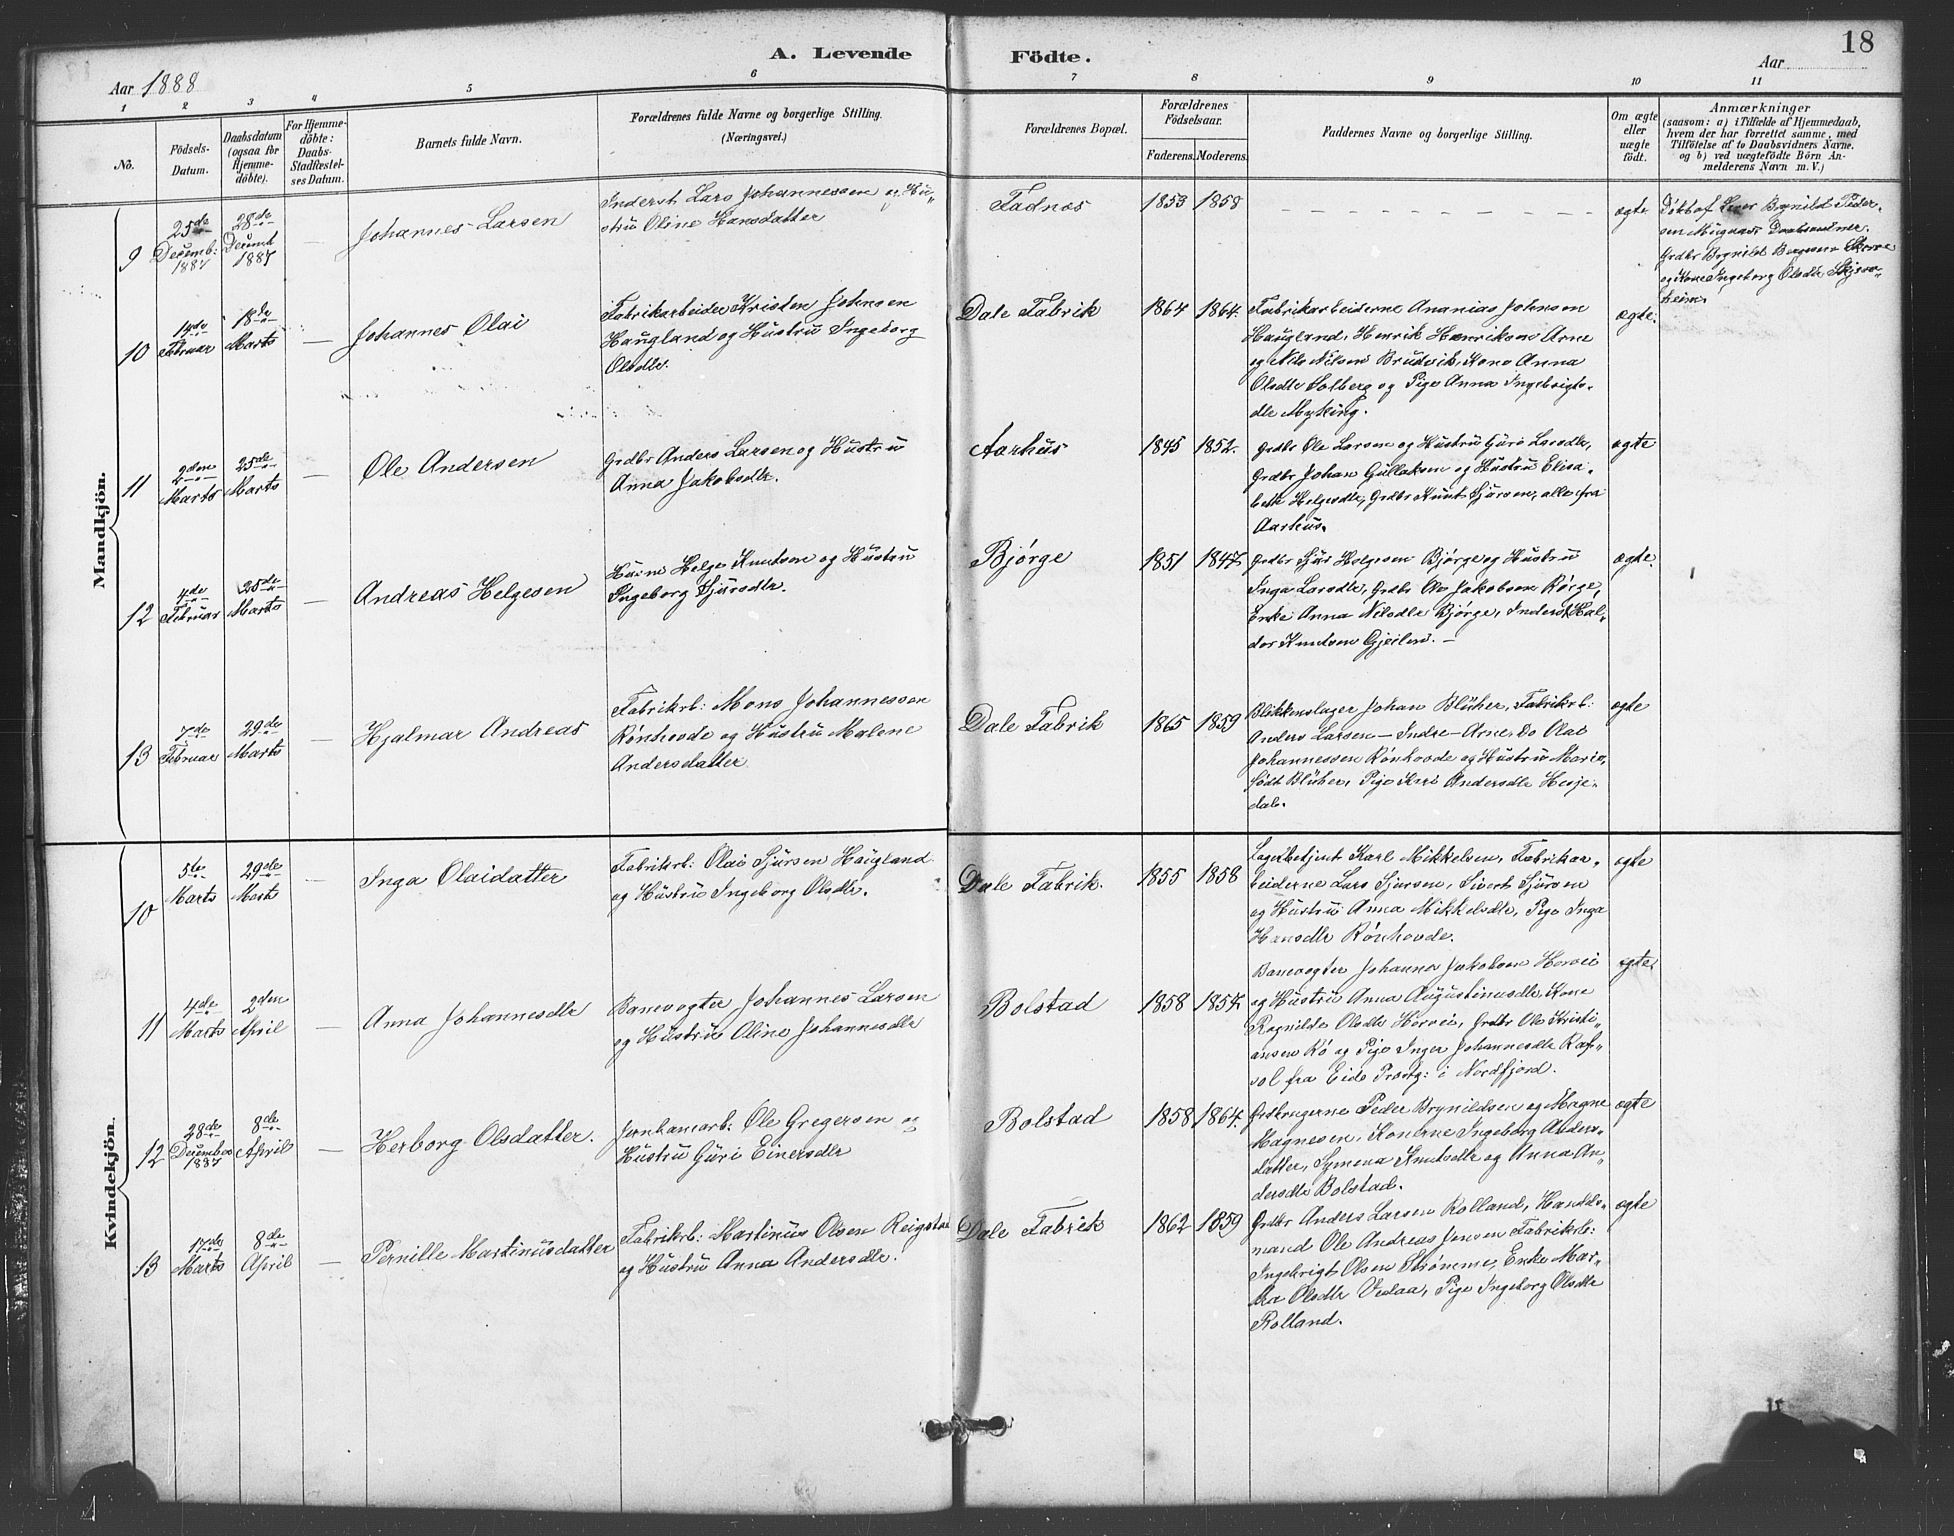 A. Levende Födte.
18
Aar 1888
Aar
1 2 3 4 5 6 7 8 9 10 11
No.
Födsels-Datum.
Daabsdatum (ogsaa for Hjemme-döbte).
For Hjemme-döbte: Daabs-Stadfæstel-ses Datum.
Barnets fulde Navn.
Forældrenes fulde Navne og borgerlige Stilling.
(Næringsvei.)
Forældrenes Bopæl.
Forældrenes Födselsaar.
Faderens. Moderens.
Faddernes Navne og borgerlige Stilling.
Om ægte eller uægte födt.
Anmærkninger
(saasom: a) i Tilfælde af Hjemmedaab,
hvem der har forrettet samme, med
Tilföielse af to Daabsvidners Navne.
og b) ved uægtefödte Börn An-
melderens Navn m. V.)
Mandkjön.
9 25de Decemb: 1887 28de Decemb 1887 — Johannes Larsen
Inderst Lars Johannessen og Hu-
stru Oline Hansdatter
Fadnes 1853 1858 — — — ægte
Brynild Peder-
sen
Grdbr Brynild
og Kone Ingeborg Olsdtr Skjers-
heim.
10 14de Februar 18de Marts — Johannes Olai
Fabrikarbeider Kristen Johnsen
Haugland og Hustru Ingeborg
Olsdtr.
Dale Fabrik 1864 1864. ægte.
Fabrikarbeiderne Ananias Johnsen
Haugland, Henrik Henriksen Arne
og Nils Nilsen Brudvik, Kone Anna
Olsdtr Solberg og Pige Anna Ingebrigts-
dtr Myking.
11 2den Marts 25de Marts — Ole Andersen
Grdbr Anders Larsen og Hustru
Anna Jakobsdtr.
Aarhus 1845 1852. ægte
Grdbr Ole Larsen og Hustru Guri Larsdtr,
Grdbr Johan Gullaksen og Hustru Elisa-
beth Helgesdtr, Grdbr Knut Sjursen, alle fra
Aarhus.
12 4de Februar 25de Marts — Andreas Helgesen
Helge Knutsen og Hustru
Ingeborg Sjursdtr.
Bjørge 1851 1847. ægte.
Grdbr Sjur Helgesen Bjørge og Hustru
Inga Larsdtr, Grdbr Ole Jakobsen Rørge,
Enke Anna Nilsdtr Bjørge, Inderst Hal-
dor Knutsen —
13 7de Februar 29de Marts — Hjalmar Andreas
Fabrikrb: Mons Johannessen
Rønhovde og Hustru Malene
Andersdatter
Dale Fabrik 1865 1859 ægte
Blikkenslager Johan Blüher, Fabrikrb:
Anders Larsen – Indre – Arne, Do Olai
Johannessen Rønhovde og Hustru Marie,
født Blüher, Pige Kari Andersdtr Hesje-
dal.
Kvindekjön.
10 5te Marts 29de Marts — Inga Olaidatter
Fabrikrb: Olai Sjursen Haugland
og Hustru Ingeborg Olsdtr.
Dale Fabrik. 1855 1858 ægte
Lagerbetjent Karl Mikkelsen, Fabrikar-
beiderne Lars Sjursen, Sivert Sjursen
og Hustru Anna Mikkelsdtr, Pige Inga
Hansdtr Rønhovde.
11 4de Marts 2den April — Anna Johannesdtr
Banevogter Johannes Larsen
og Hustru Oline Johannesdtr
Bolstad 1858 1857. ægte.
Banevogter Johannes Jakobsen Horvei
og Hustru Anna Augustinusdtr, Kone
Ragnilde Olsdtr Horvei, Grdbr Ole Kristi-
ansen Rø og Pige Inger Johannesdtr
fra Eids Præstg: i Nordfjord.
12 28de December 1887 8de April — Herborg Olsdatter.
Jernbanearb: Ole Gregersen og
Hustru Guri Einersdtr
Bolstad 1858 1864. ægte
Grdbrugerne Peder Brynildsen og Magne
Magnesen, Konerne Ingeborg Anders-
datter, Symena Knutsdtr og Anna An-
dersdtr Bolstad.
13 17de Marts 8de April — Pernille Martinusdatter
Fabrikrb: Martinus Olsen Reigstad
og Hustru Anna Andersdtr.
Dale Fabrik 1862 1859 ægte
Grdbr Anders Larsen Rolland, Handels-
mand Ole Andreas Jensen Fabrikrb:
Ingebrigt Olsen Strømme, Enke Mar-
tha Olsdtr Vedaa, Pige Ingeborg Olsdtr
Rolland.